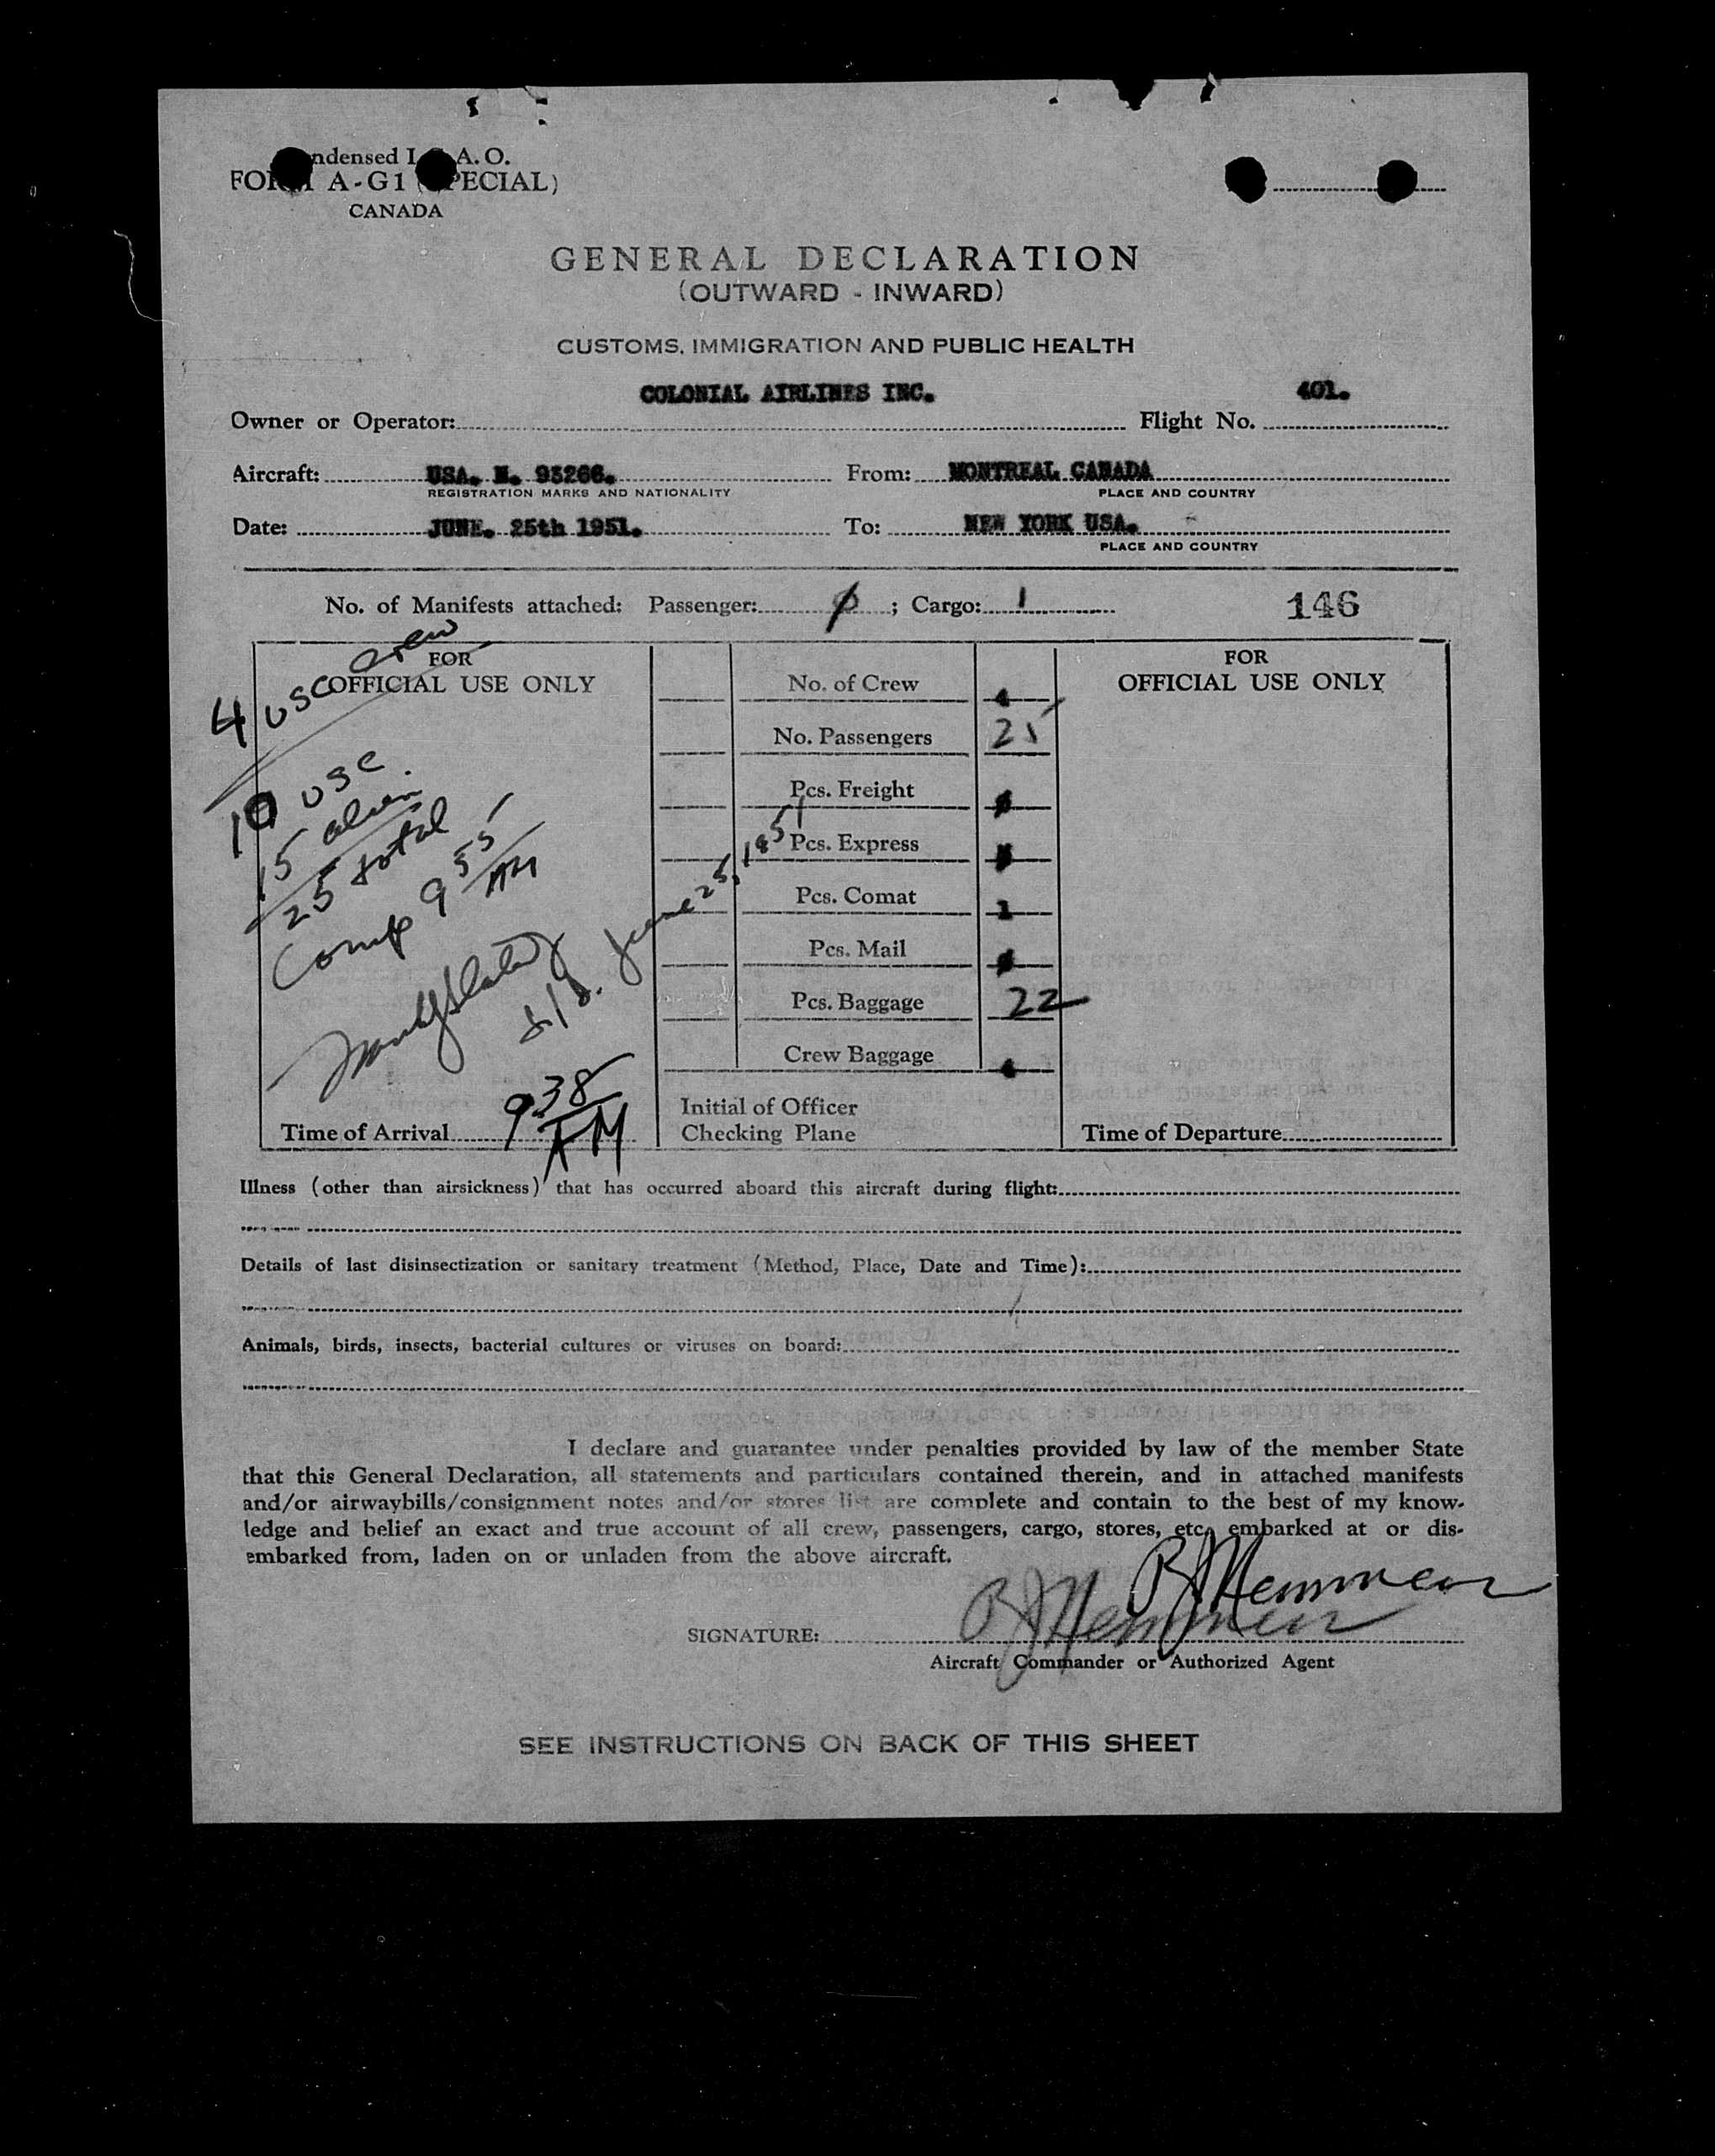 ndensed I. A. O.
FORM A-G1 (SPECIAL)
CANADA
GENERAL DECLARATION
(OUTWARD - INWARD)
CUSTOMS, IMMIGRATION AND PUBLIC HEALTH
Owner or Operator: COLONIAL AIRLINES INC. Flight No. 401.
Aircraft: USA. N. 93266. From: MONTREAL CANADA
REGISTRATION MARKS AND NATIONALITY PLACE AND COUNTRY
Date: JUNE. 25th 1951. To: NEW YORK USA.
PLACE AND COUNTRY
No. of Manifests attached: Passenger: 0 ; Cargo: 1 146
FOR
OFFICIAL USE ONLY
4 USC crew
10 USC.
15 alien
25 total
Comp 9 55 AM
June 25, 1951
Time of Arrival 9 38 AM
No. of Crew 4
No. Passengers 25
Pcs. Freight
Pcs. Express
Pcs. Comat 1
Pcs. Mail
Pcs. Baggage 22
Crew Baggage 4
Initial of Officer
Checking Plane
FOR
OFFICIAL USE ONLY
Time of Departure
Illness (other than airsickness) that has occurred aboard this aircraft during flight:
Details of last disinsectization or sanitary treatment (Method, Place, Date and Time):
Animals, birds, insects, bacterial cultures or viruses on board:
I declare and guarantee under penalties provided by law of the member State
that this General Declaration, all statements and particulars contained therein, and in attached manifests
and/or airwaybills/consignment notes and/or stores list are complete and contain to the best of my know-
ledge and belief an exact and true account of all crew, passengers, cargo, stores, etc, embarked at or dis-
embarked from, laden on or unladen from the above aircraft.
SIGNATURE:
Aircraft Commander or Authorized Agent
SEE INSTRUCTIONS ON BACK OF THIS SHEET